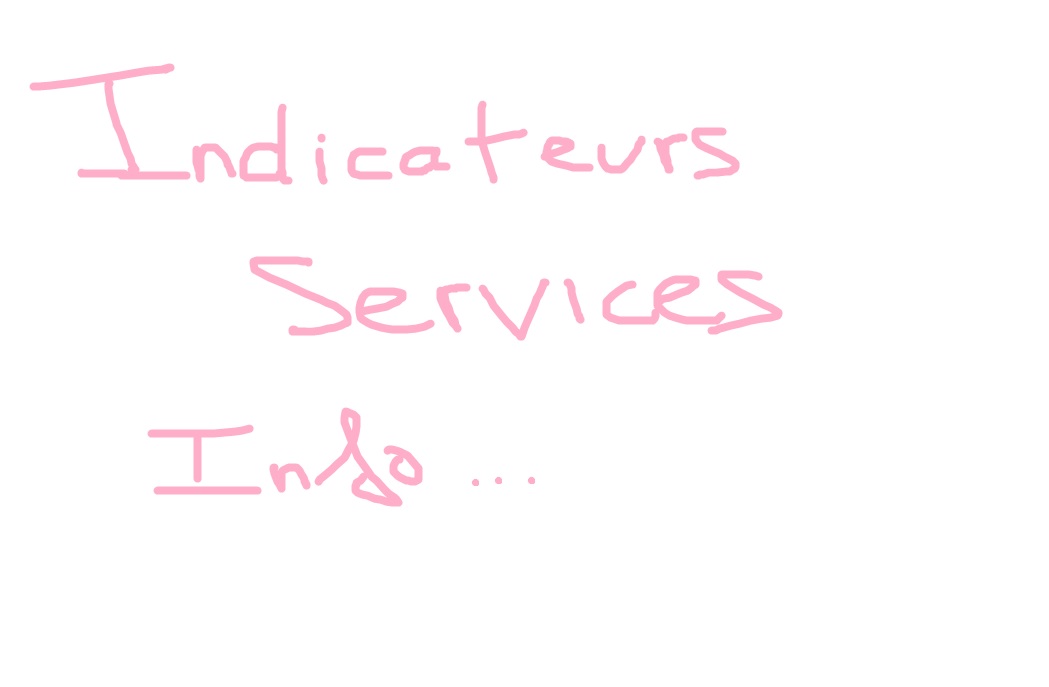 Indicateurs
Services
Info ...